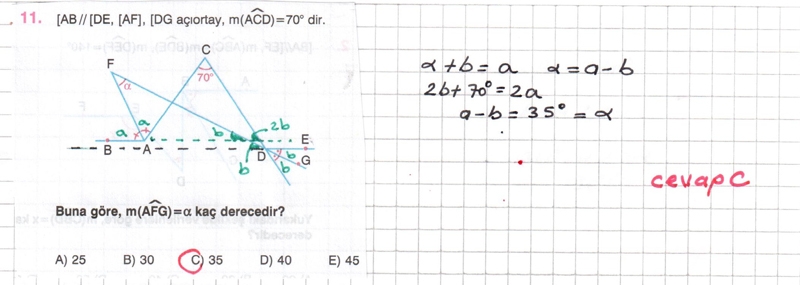 11. [AB // [DE, [AF], [DG açıortay, m(ACD)=70° dir.
C
F
70°
α
a
a
b
2b
E
B
A
b
D
b
b
G
Buna göre, m(AFG)=α kaç derecedir?
A) 25 B) 30 C) 35 D) 40 E) 45
α + b = a α = a - b
2b + 70° = 2a
a - b = 35° = α
cevap C